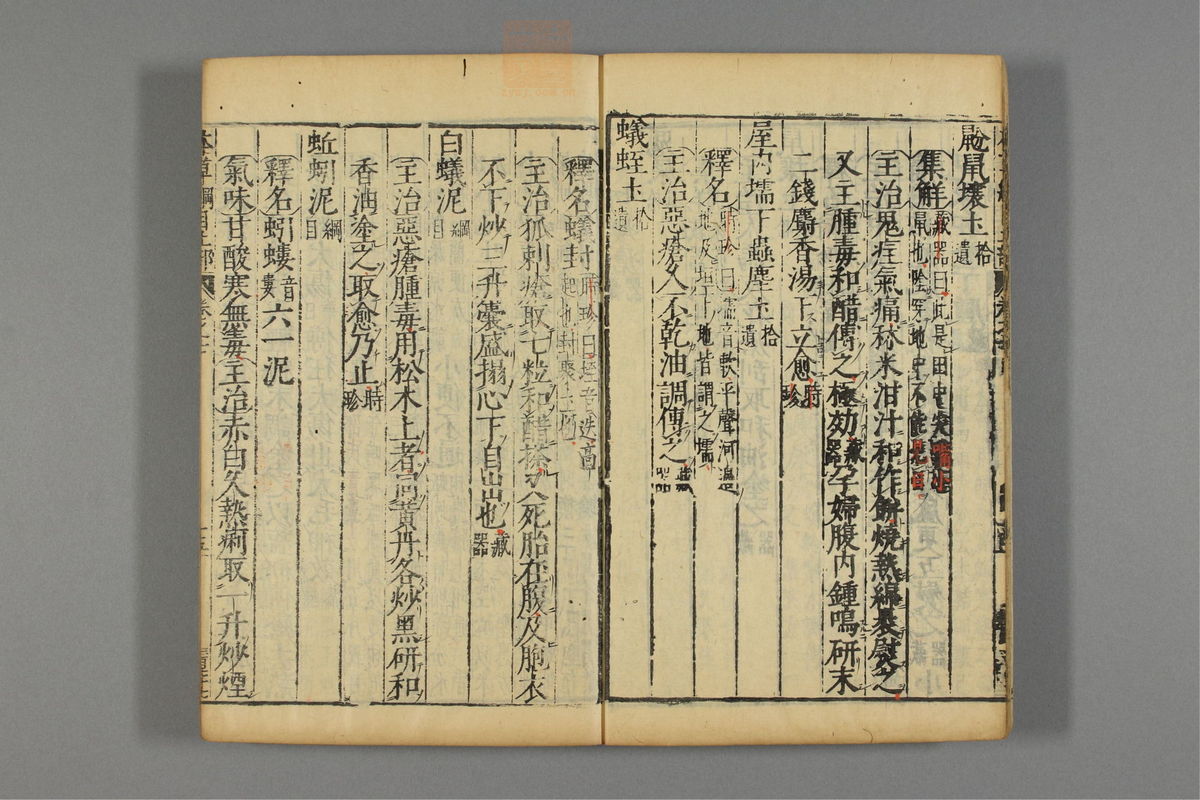 鼢鼠壤土拾遺
集解藏器曰此是田中尖嘴小鼠也陰穿地中不能見日
主治鬼疰氣痛秫米泔汁和作餅燒熱綿裹熨之
又主腫毒和醋傅之極効藏器孕婦腹内鍾鳴研末
二錢麝香湯下立愈時珍
屋内壖下蟲塵土拾遺
釋名時珍曰壖音軟平聲河邊地及垣下地皆謂之壖
主治惡瘡久不乾油調傅之藏器
蟻蛭土拾遺
釋名蟻封時珍曰垤音迭高起也封聚土也
主治狐刺瘡取七粒和醋搽又死胎在腹及胞衣
不下炒三升囊盛搨心下自出也藏器
白蟻泥綱目
主治惡瘡腫毒用松木上者同黃丹各炒黑研和
香油塗之取愈乃止時珍
蚯蚓泥綱目
釋名蚓螻音婁六一泥
氣味甘酸寒無毒主治赤白久熱痢取一升炒煙
本草綱目土部